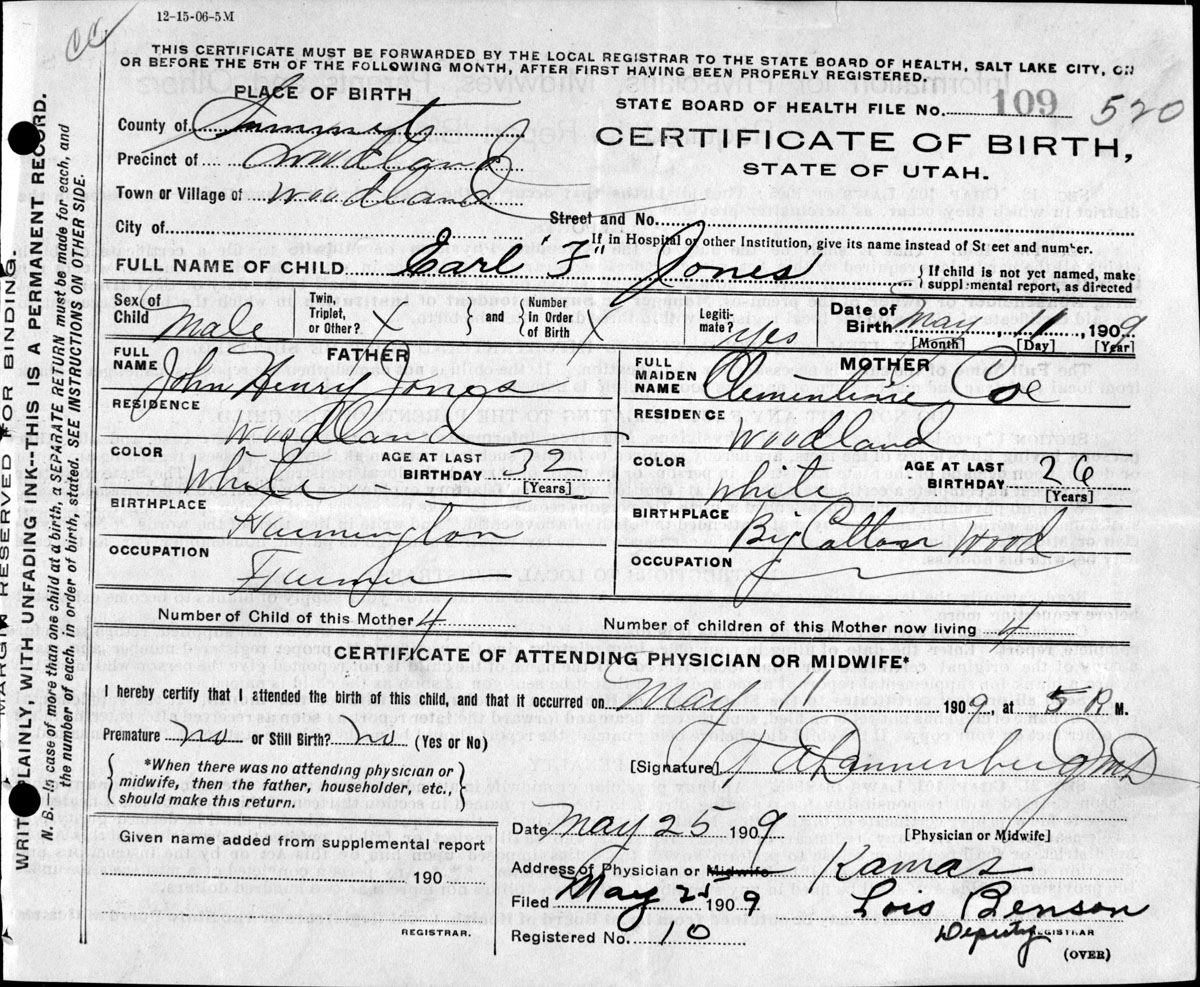 12-15-06-5M
THIS CERTIFICATE MUST BE FORWARDED BY THE LOCAL REGISTRAR TO THE STATE BOARD OF HEALTH, SALT LAKE CITY, ON
OR BEFORE THE 5TH OF THE FOLLOWING MONTH, AFTER FIRST HAVING BEEN PROPERLY REGISTERED.
PLACE OF BIRTH
STATE BOARD OF HEALTH FILE No. 109 520
County of Summit
CERTIFICATE OF BIRTH,
Precinct of Woodland
STATE OF UTAH.
Town or Village of Woodland
Street and No.
City of
If in Hospital or other Institution, give its name instead of Street and number.
FULL NAME OF CHILD Earl F Jones { If child is not yet named, make supplemental report, as directed
Sex of Child Male Twin, Triplet, or Other? X } and { Number in Order of Birth X Legitimate? Yes Date of Birth May 11 1909
[Month] [Day] [Year]
FATHER
FULL NAME John Henry Jones
RESIDENCE Woodland
COLOR White AGE AT LAST BIRTHDAY 32 [Years]
BIRTHPLACE
OCCUPATION Farmer
MOTHER
FULL MAIDEN NAME Clementine Coe
RESIDENCE Woodland
COLOR White AGE AT LAST BIRTHDAY 26 [Years]
BIRTHPLACE Big Cotton Wood
OCCUPATION
Number of Child of this Mother 4 Number of children of this Mother now living 4
CERTIFICATE OF ATTENDING PHYSICIAN OR MIDWIFE*
I hereby certify that I attended the birth of this child, and that it occurred on May 11 1909, at 5 P. M.
Premature no or Still Birth? no (Yes or No)
{ *When there was no attending physician or
midwife, then the father, householder, etc.,
should make this return. }
[Signature] Dannenberg MD
Date May 25 1909 [Physician or Midwife]
Given name added from supplemental report
190
REGISTRAR.
Address of Physician or Midwife Kamas
Filed May 25 1909 Lois Benson
Deputy REGISTRAR
Registered No. 10
(OVER)
MARGIN RESERVED FOR BINDING.
WRITE PLAINLY, WITH UNFADING INK---THIS IS A PERMANENT RECORD.
N. B.—In case of more than one child at a birth, a SEPARATE RETURN must be made for each, and
the number of each, in order of birth, stated. SEE INSTRUCTIONS ON OTHER SIDE.